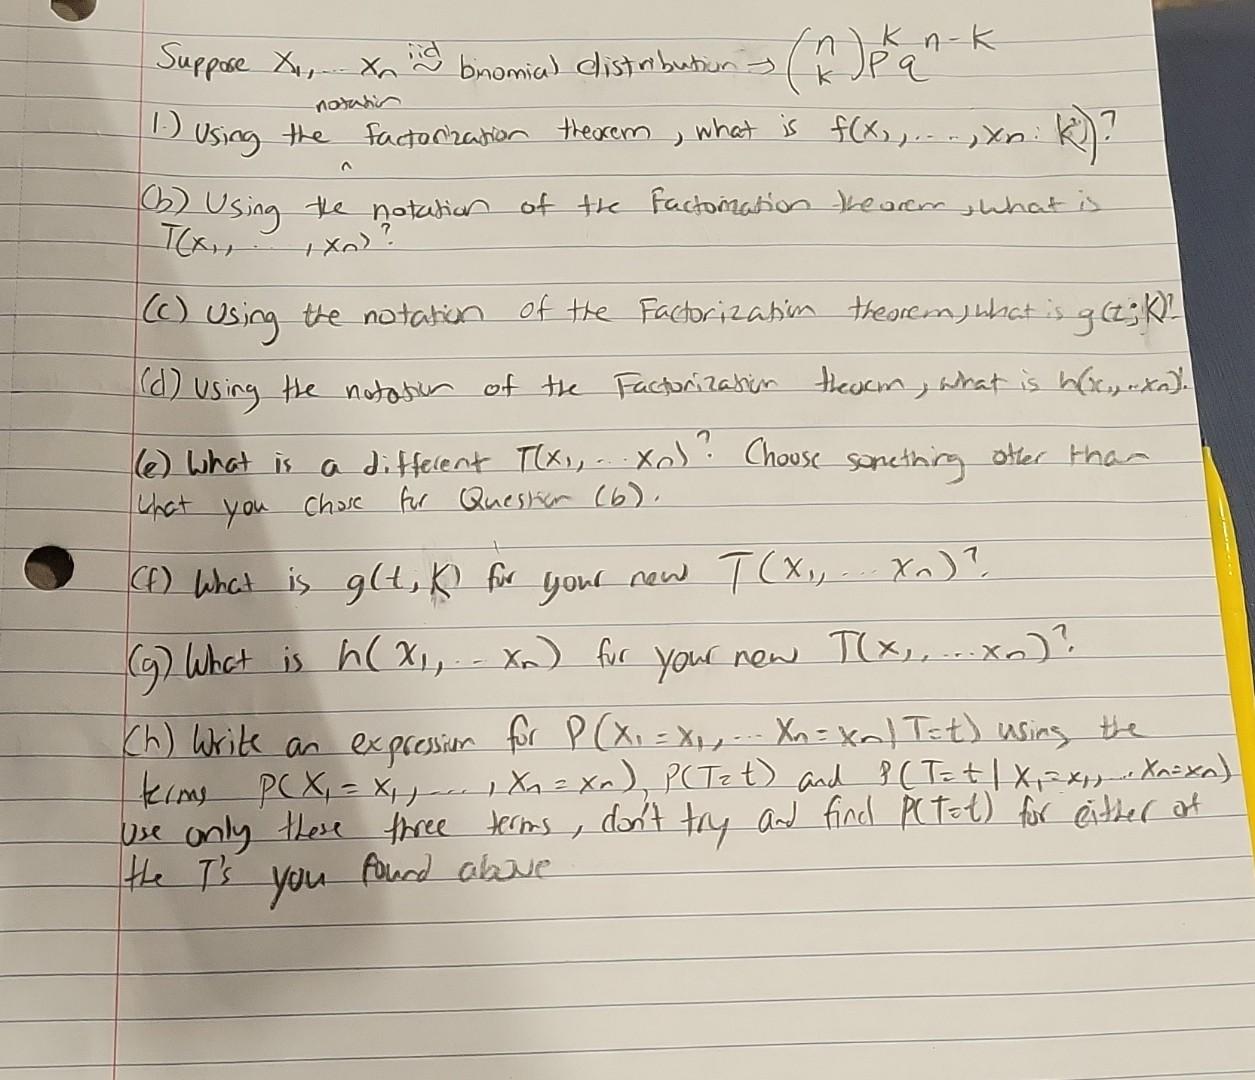 Suppose X₁,... Xn iid ~ binomial distribution → (n k) p^k q^n-k
notation
1.) Using the ^ factorization theorem, what is f(x₁,....,xn: k)?
(b) Using the notation of the Factorization theorem, what is
T(x₁, ...., xn)?
(c) Using the notation of the Factorization theorem, what is g(t;k)?
(d) Using the notation of the Factorization theorem, what is h(x₁,..xn)?
(e) What is a different T(x₁,... xn)? Choose something other than
what you chose for Question (b).
(f) What is g(t, k) for your new T(x₁,... xn)?
(g) What is h(x₁,... xn) for your new T(x₁,...xn)?
(h) Write an expression for P(X₁=x₁,... Xn=xn|T=t) using the
terms P(X₁=x₁,...., Xn=xn), P(T=t) and P(T=t|X₁=x₁,...Xn=xn)
Use only these three terms, don't try and find P(T=t) for either of
the T's you found above